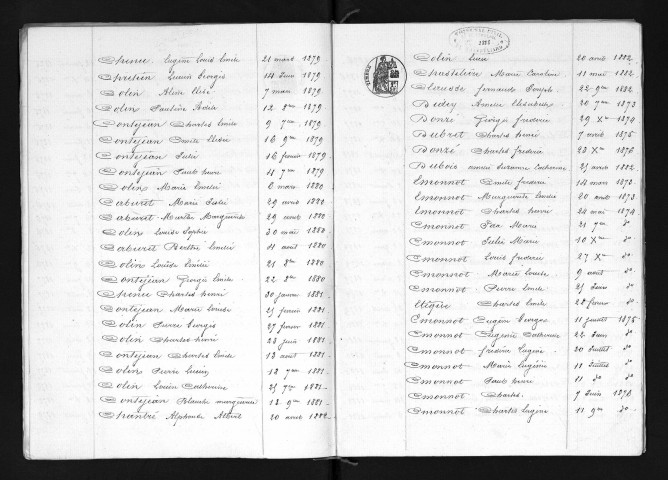 Eugène Louis Emile 21 mars 1879
Lucien Georges 14 Juin 1879
Colin Alice Elise 7 mars 1879
Colin Pauline Adèle 12 8bre 1879
Contejean Charles Emile 9 7bre 1879
Contejean Emile 16 9bre 1879
Contejean Julie 16 février 1879
Contejean Paul henri 4 7bre 1879
Colin Marie Emélie 6 mars 1880
Caburet Marie Julie 29 avril 1880
Caburet Marthe Marguerite 29 avril 1880
Colin Louise Sophie 30 mai 1880
Caburet Berthe Emélie 31 août 1880
Colin Louise Emélie 21 8bre 1880
Contejean Georges Emile 22 8bre 1880
Charles henri 30 janvier 1881
Contejean Marie Louise 25 février 1881
Colin Pierre Georges 27 février 1881
Colin Charles henri 23 juin 1881
Contejean Charles Emile 13 août 1881
Colin Pierre Lucien 12 7bre 1881
Colin Louise Catherine 25 7bre 1881
Contejean Blanche marguerite 13 9bre 1881
Alphonse Albert 20 avril 1882
Colin 20 avril 1882
Marie Caroline 11 mai 1882
Fernande Joseph 22 9bre 1882
Amélie Elisabeth 20 7bre 1873
Donzé Georges Frédéric 29 Xbre 1874
Dubret Charles henri 7 avril 1875
Donzé Charles Frédéric 23 Xbre 1876
Dubois Suzanne Catherine 25 avril 1882
Emonnot Emile Frédéric 14 mars 1873
Emonnot Marguerite Emélie 20 avril 1873
Emonnot Charles henri 24 mai 1874
Emonnot Marie 21 7bre do
Emonnot Julie Marie 10 Xbre do
Emonnot Louis Frédéric 27 Xbre do
Emonnot Marie Louise 9 août do
Emonnot Pierre Emile 25 Juin do
Charles Emile 28 février do
Emonnot Eugène Georges 11 Juillet 1875
Emonnot Eugénie Catherine 22 Juin do
Emonnot Frédéric Eugène 20 Juillet do
Emonnot Marie Eugénie 11 Juillet do
Emonnot Paul henri 11 do do
Emonnot Charles 7 Juin 1876
Emonnot Charles Eugène 11 9bre do